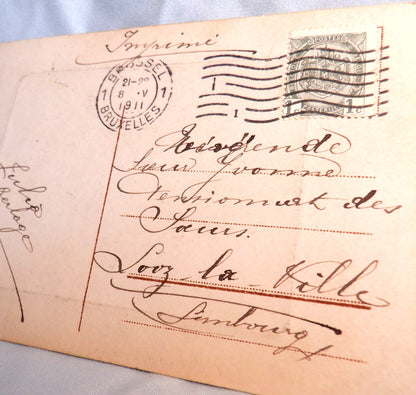 Imprimé
BRUSSEL
21-22
8 · V
1911
1 1
BRUXELLES
POSTES
1 c 1 c
I
Révérende
Sœur Yvonne
Pensionnat des
Sœurs.
Looz-la-Ville
Limbourg